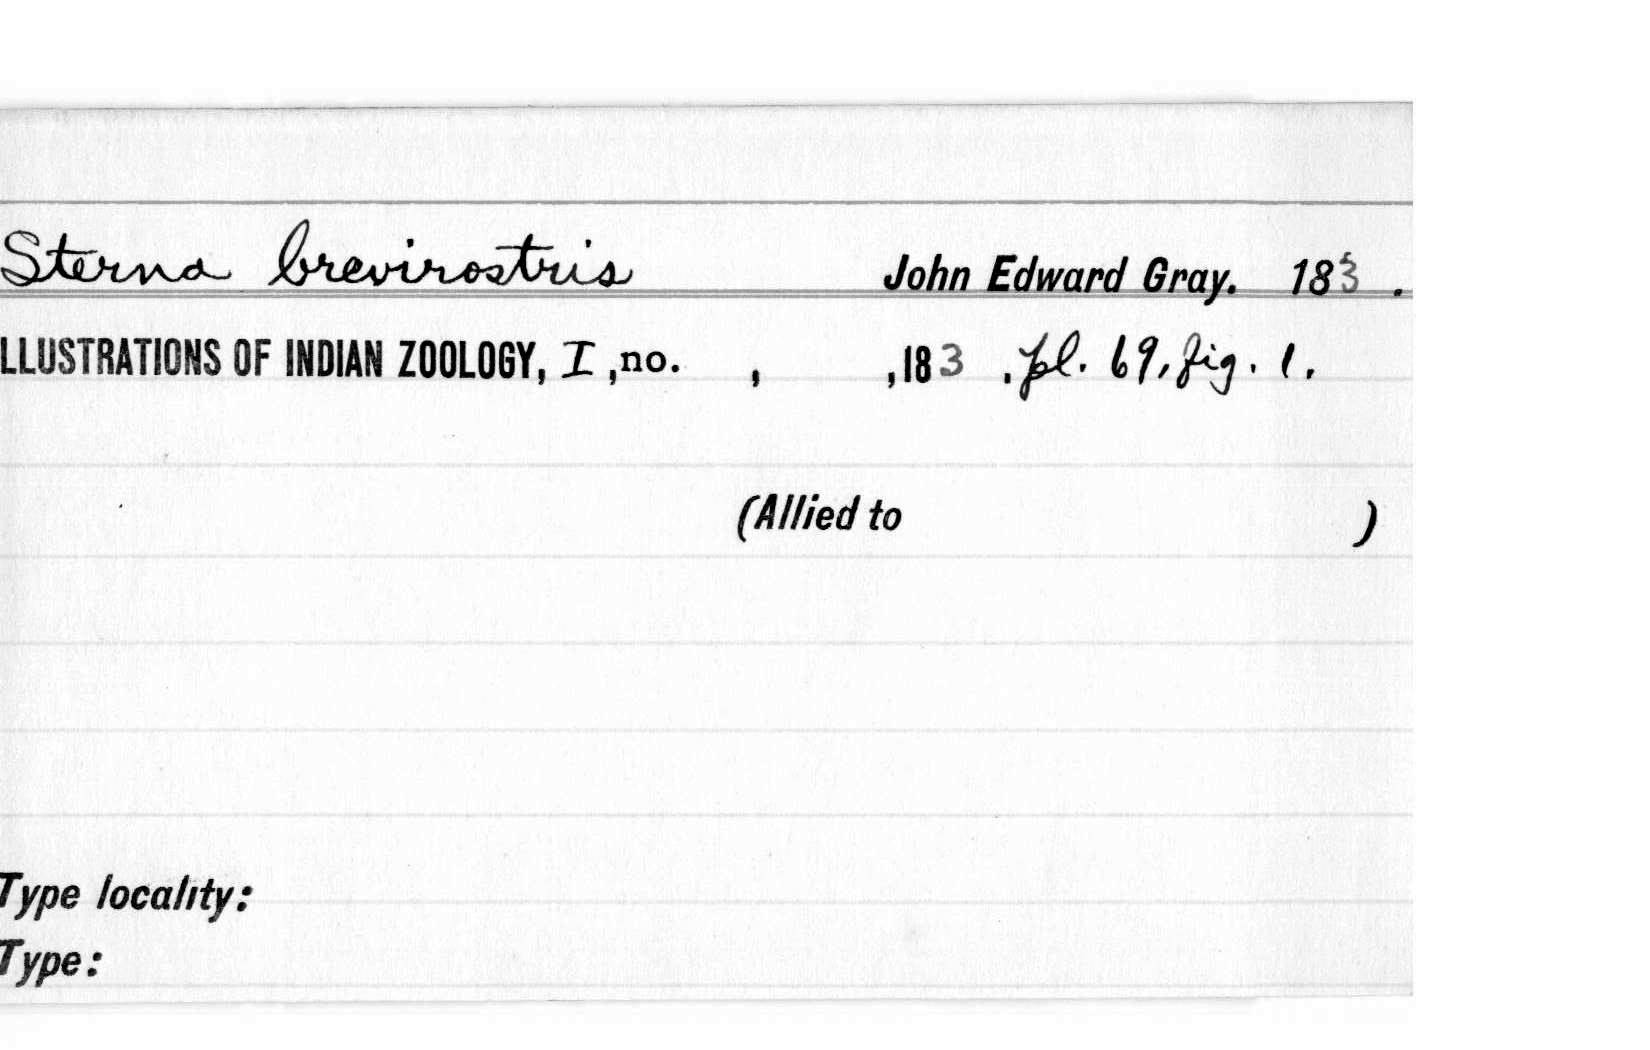 Sterna brevirostris John Edward Gray. 183 .
LLUSTRATIONS OF INDIAN ZOOLOGY, I, no. , ,183 .pl. 69, fig. 1.
(Allied to )
Type locality:
Type: